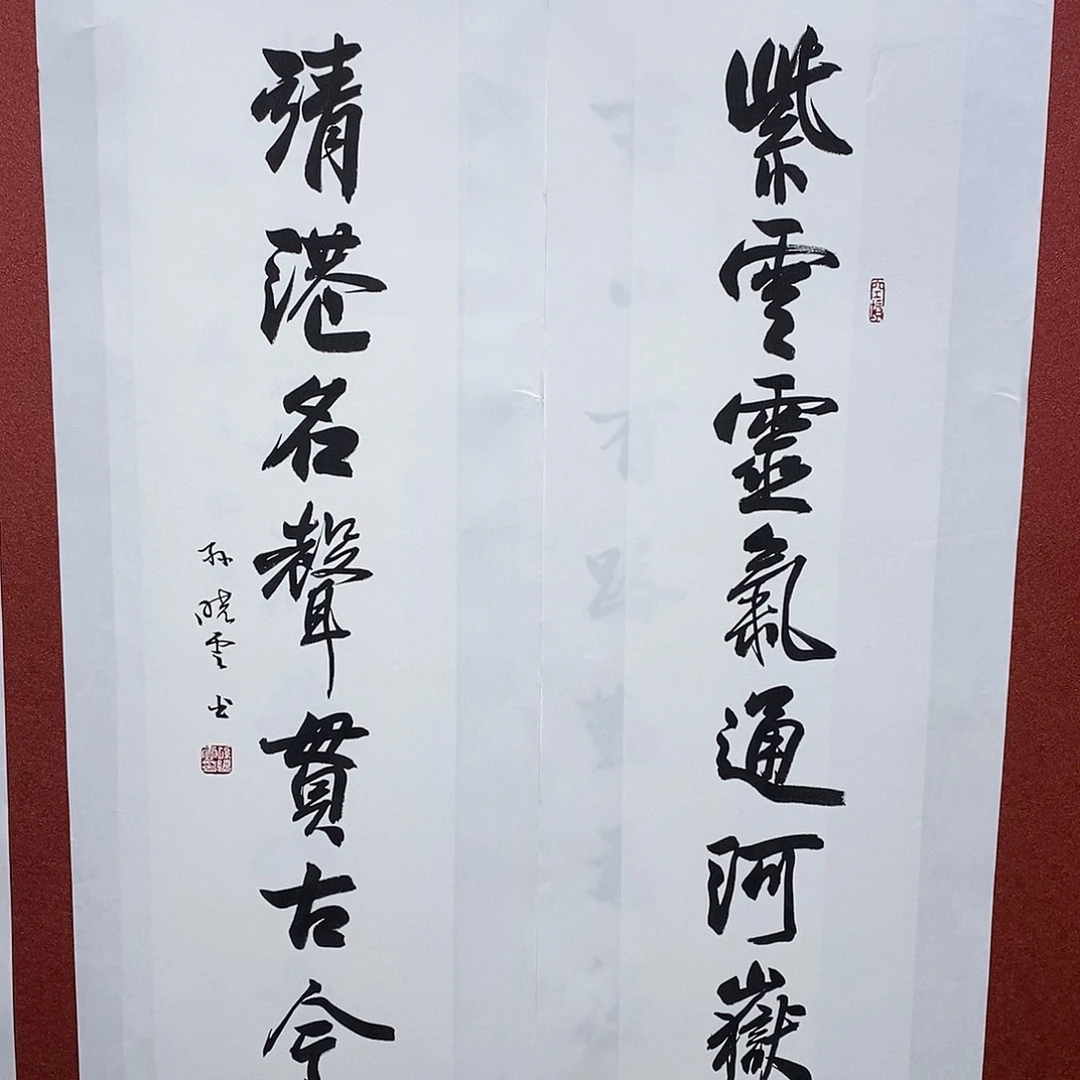 紫雲靈氣通河嶽
靖港名聲貫古今
孙晓雲书